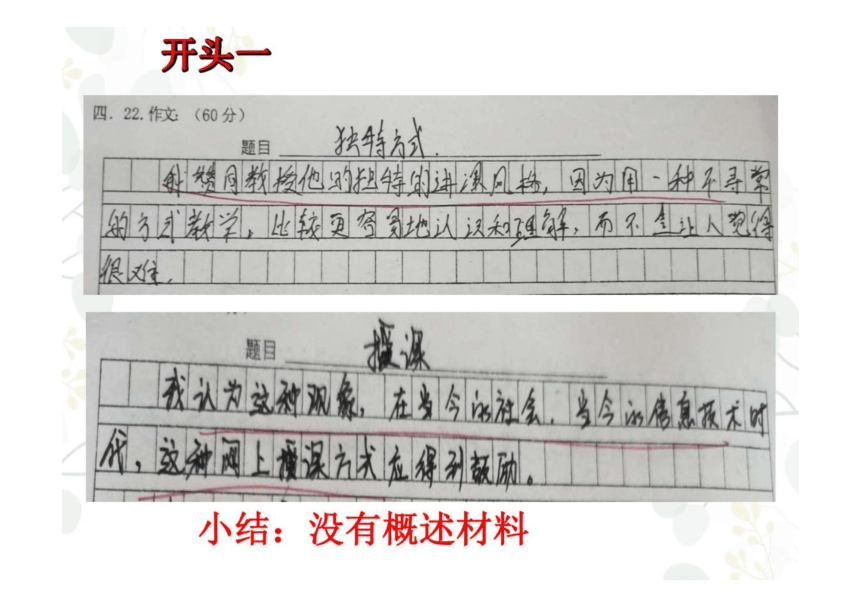 开头一
四. 22.作文:（60分）
题目 独特方式.
我赞同教授他的独特的讲课风格，因为用一种不寻常
的方式教学，比较更容易地认识和理解，而不会让人觉得
很难.
题目 授课
我认为这种现象，在当今的社会，当今的信息技术时
代，这种网上授课方式应得到鼓励。
小结：没有概述材料